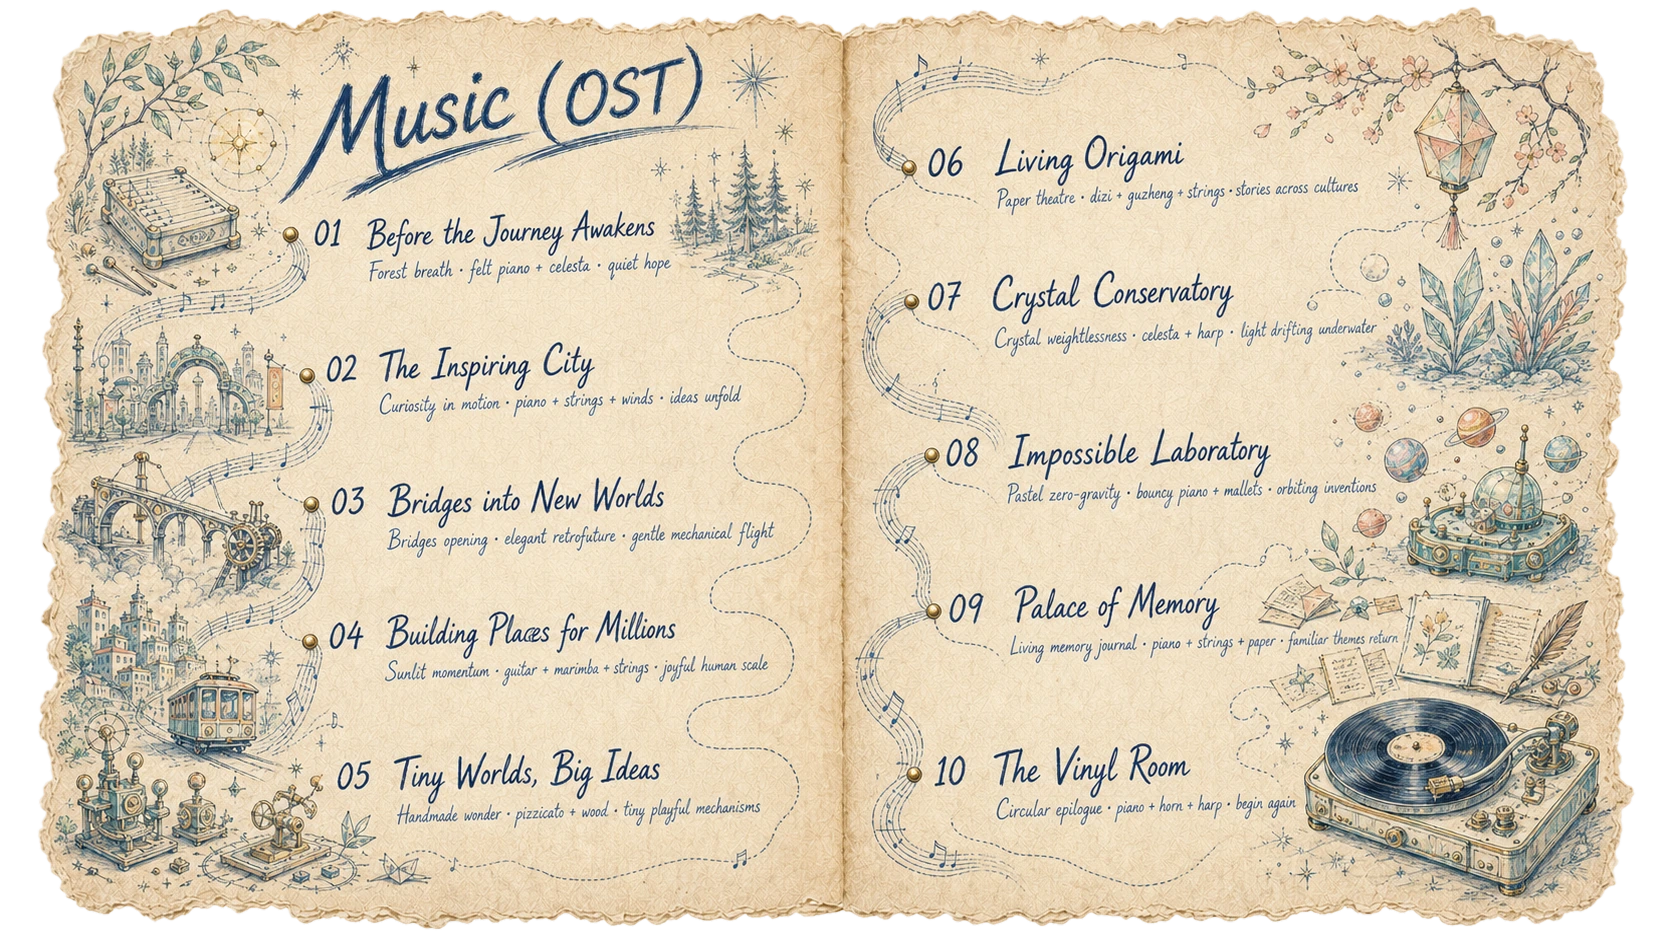 Music (OST)
01 Before the Journey Awakens
Forest breath · felt piano + celesta · quiet hope
02 The Inspiring City
Curiosity in motion · piano + strings + winds · ideas unfold
03 Bridges into New Worlds
Bridges opening · elegant retrofuture · gentle mechanical flight
04 Building Places for Millions
Sunlit momentum · guitar + marimba + strings · joyful human scale
05 Tiny Worlds, Big Ideas
Handmade wonder · pizzicato + wood · tiny playful mechanisms
06 Living Origami
Paper theatre · dizi + guzheng + strings · stories across cultures
07 Crystal Conservatory
Crystal weightlessness · celesta + harp · light drifting underwater
08 Impossible Laboratory
Pastel zero-gravity · bouncy piano + mallets · orbiting inventions
09 Palace of Memory
Living memory journal · piano + strings + paper · familiar themes return
10 The Vinyl Room
Circular epilogue · piano + horn + harp · begin again